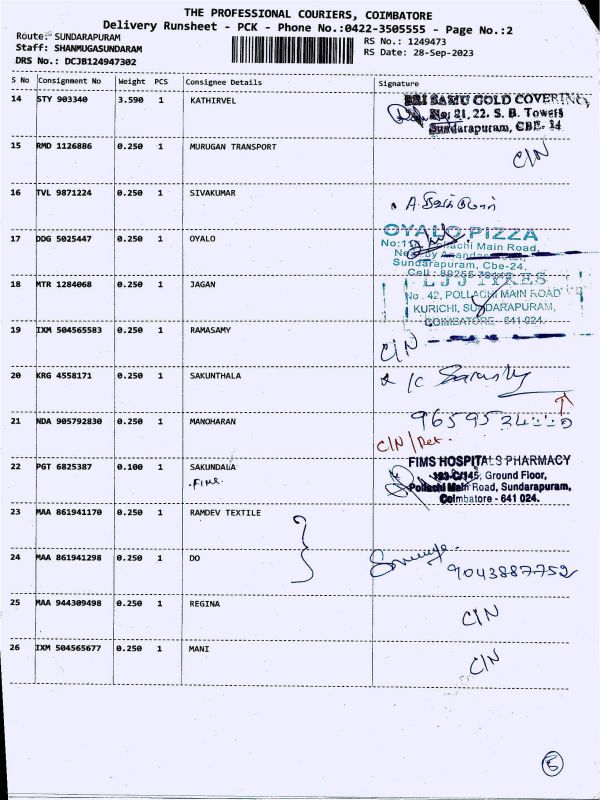 THE PROFESSIONAL COURIERS, COIMBATORE
Delivery Runsheet - PCK - Phone No.:0422-3505555 - Page No.:2
Route: SUNDARAPURAM
Staff: SHANMUGASUNDARAM
DRS No.: DCJB124947302
RS No.: 1249473
RS Date: 28-Sep-2023
S No Consignment No Weight PCS Consignee Details Signature
14 STY 903340 3.590 1 KATHIRVEL
SRI SAMU GOLD COVERING,
No: 21, 22. S. B. Towers
Sundarapuram, CBE- 14
15 RMD 1126886 0.250 1 MURUGAN TRANSPORT C/N
16 TVL 9871224 0.250 1 SIVAKUMAR
17 DDG 5025447 0.250 1 OYALO
OYALO PIZZA
Pollachi Main Road,
Sundarapuram, Cbe-24.
18 MTR 1284068 0.250 1 JAGAN
No. 42, POLLACHI MAIN ROAD
KURICHI, SUNDARAPURAM,
COIMBATORE - 641 024.
19 IXM 504565583 0.250 1 RAMASAMY C/N
20 KRG 4558171 0.250 1 SAKUNTHALA
21 NDA 905792830 0.250 1 MANOHARAN
C/N/Ret.
22 PGT 6825387 0.100 1 SAKUNDALA
FIMS HOSPITALS PHARMACY
193-C/145, Ground Floor,
Pollachi Main Road, Sundarapuram,
Coimbatore - 641 024.
23 MAA 861941170 0.250 1 RAMDEV TEXTILE
24 MAA 861941298 0.250 1 DO
9043887752
25 MAA 944309498 0.250 1 REGINA C/N
26 IXM 504565677 0.250 1 MANI C/N
5